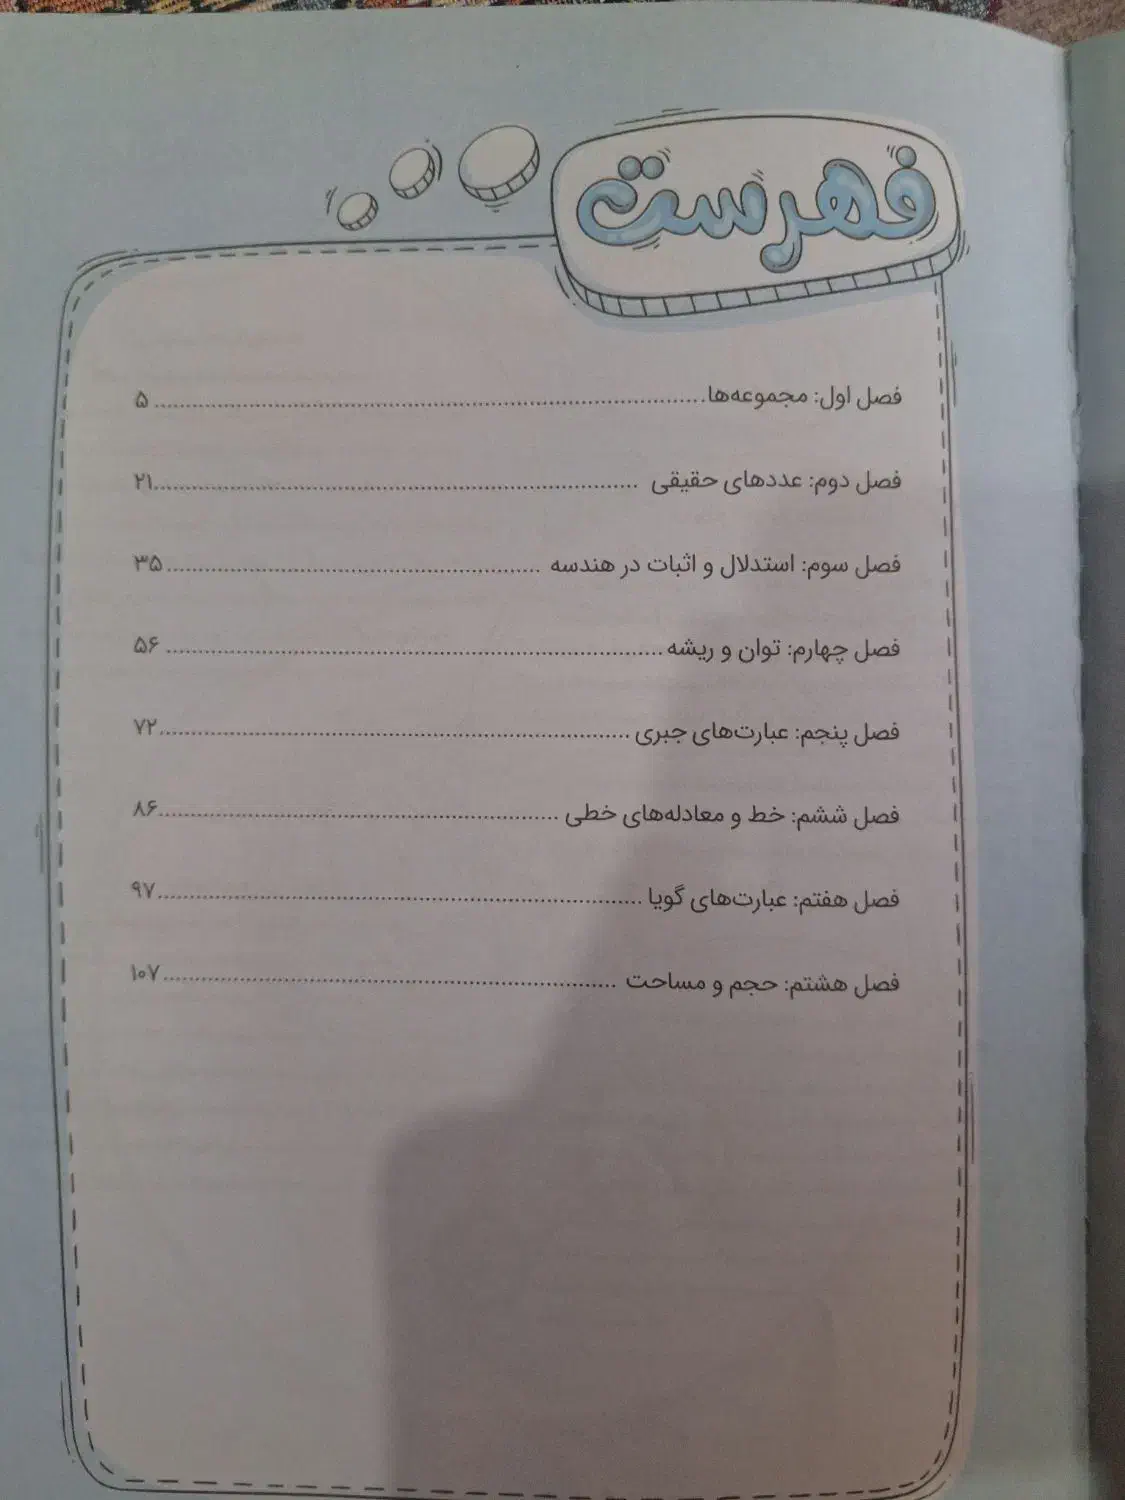 فهرست
فصل اول: مجموعه‌ها........................................................................ ۵
فصل دوم: عددهای حقیقی ........................................................................۲۱
فصل سوم: استدلال و اثبات در هندسه ........................................................ ۳۵
فصل چهارم: توان و ریشه........................................................................ ۵۶
فصل پنجم: عبارت‌های جبری........................................................................۷۲
فصل ششم: خط و معادله‌های خطی ............................................................۸۶
فصل هفتم: عبارت‌های گویا ........................................................................۹۷
فصل هشتم: حجم و مساحت ....................................................................۱۰۷